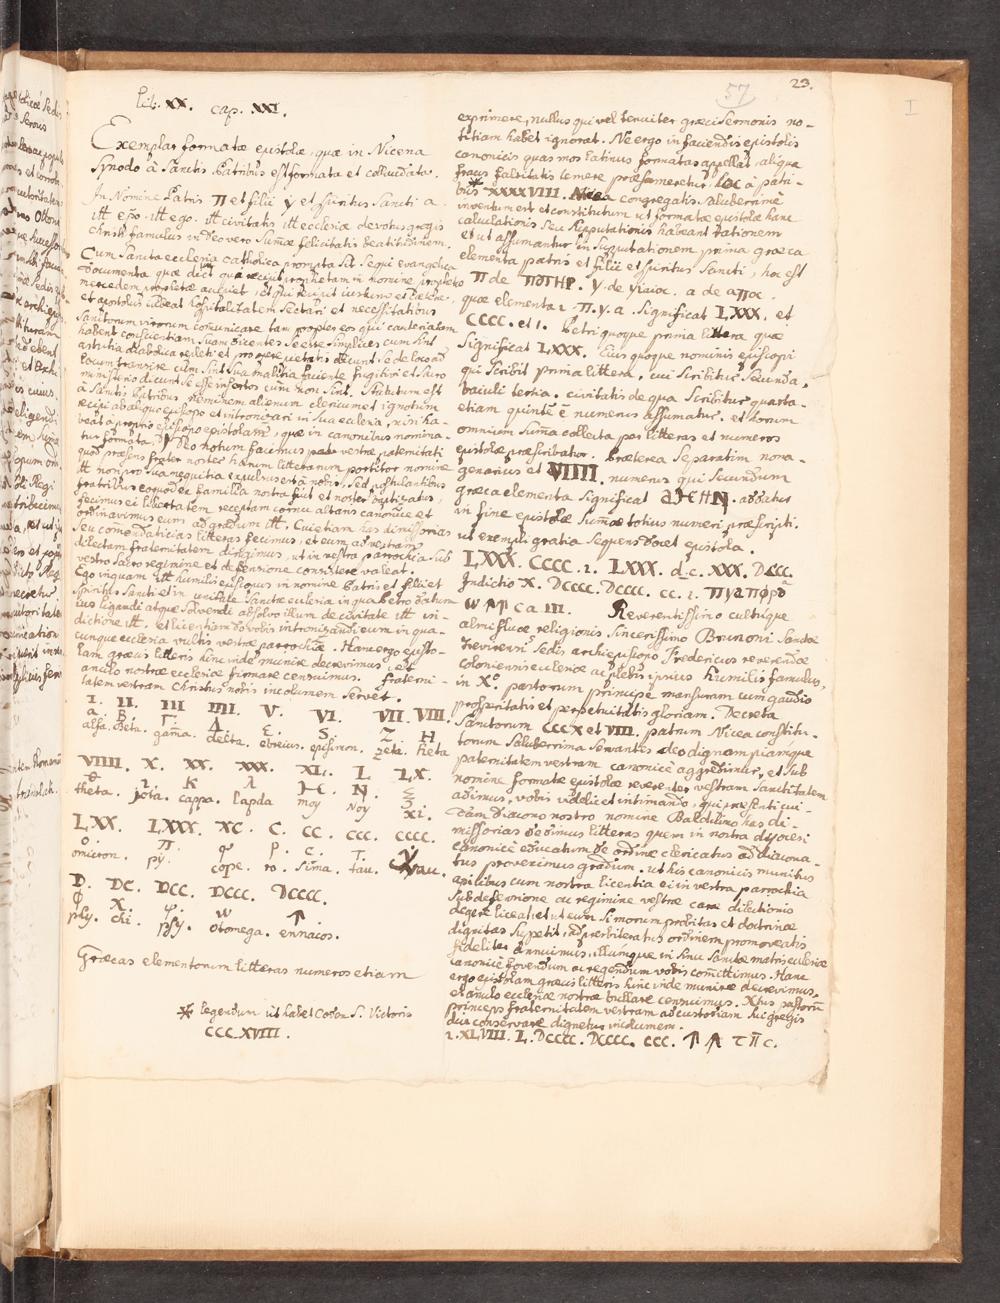 57
23.
I
Lib. XX. cap. XXI.
Exemplar formatæ epistolæ, quæ in Nicena
Synodo à Sanctis Patribus est formata et collaudata.
In Nomine Patris Π et filii Y et spiritus Sancti a.
Ill epō. Ill ego. Ill civitatis Ill ecclesiæ devotus gregis
Christi famulus in deo vero Summæ felicitatis beatitudinem.
Cum Sancta ecclesia catholica prompta sit sequi evangelica
documenta quæ dicit qui recipit prophetam in nomine prophetæ
mercedem prophetæ accipiet, et qui recipit iustum et cetera.
et apostolus iubeat hospitalitatem sectari et necessitatibus
Sanctorum virorum comunicare tam propter eos qui cauteriatam
habent conscientiam suam dicentes se esse simplices cum sint
astutia diabolica repleti et pro opere pietatis dicunt se de loco ad
locum transire cum sint sua malitia faciente fugitivi et sacro
ministerio dicunt se esse infertos cum non sint. Statutum est
à Sanctis Patribus neminem alienum clericum et ignotum
recipi ab aliquo episcopo et intronizari in sua eclesia, nisi ha-
beat a proprio episcopo epistolam, quæ in canonibus nomina-
tur formata. Ideo notum facimus vestræ paternitati
quod præsens frater noster harum litterarum portitor nomine
Ill non pro sua nequitia expulsus est à nobis. Sed postulantibus
fratribus eo quod ex familia nostra fuit et noster baptizatus,
fecimus ei libertatem receptam cornu altaris canonice et
ordinavimus eum ad gradum Ill. Cui etiam has dimissorias
seu comendaticias litteras fecimus, et eum ad vestram
dilectam fraternitatem dirigimus, ut in vestra parrochia sub
vestro sacro regimine et defensione consistere valeat.
Ego inquam Ill humilis episcopus in nomine Patris et filii et
spiritus Sancti et in unitate Sanctæ ecclesiæ in qua Petro datum
ius ligandi atque solvendi absolvo illum de civitate Ill in-
dictione Ill. et licentiam do vobis intronizandi eum in qua-
cunque ecclesia vultis vestræ parrochiæ. Hanc ergo episto-
lam græcis litteris hinc inde munire decrevimus, et
anulo nostræ ecclesiæ firmare censuimus. Fraterni-
tatem vestram Christus nobis incolumem servet.
I. II. III IIII. V. VI. VII. VIII.
α. B. Γ. Δ. Ε. S. Z. H.
alfa. beta. gama. delta. ebreius. episimon. zeta. heta
VIIII. X. XX. XXX. XL. L. LX.
θ. ι. K λ M. N. Ξ
theta. jota. cappa. lapda moy Noy xi.
LXX. LXXX. XC. C. CC. CCC. CCCC.
o. π. q. ρ. c. T. Y.
omicron. py. cope. ro. sima. tau. yau.
D. DC. DCC. DCCC. DCCCC.
φ X. ψ. w ↑.
phy. chi. psy. otomega. ennacos.
Græcas elementorum litteras numeros etiam
* legendum ut habet Codex S. Victoris
CCCXVIII.
exprimere, nullus qui vel tenuiter græci sermonis no-
titiam habet ignorat. Ne ergo in faciendis epistolis
canonicis quas mos latinus formatas appellet, aliqua
fraus falsitatis temere præsumeretur, hoc à patri-
bus * XXXXVIII. Nicea congregatis saluberrime
inventum est et constitutum ut formatæ epistolæ hanc
calculationis seu supputationis habeant rationem
et ut assumantur in supputationem prima græca
elementa patris et filii et spiritus Sancti, hoc est
Π de ΠατΗΡ. Y. de yiaioc. a de aΠoc.
quæ elementa ι. Π. y. a. Significat LXXX, et
CCCC. et I. Petri quoque prima littera quæ
significat LXXX. Eius quoque nominis episcopi
qui scribit prima littera, cui scribitur secunda,
baiuli tertia. civitatis de qua scribitur quarta.
etiam quintē ē numerus assumatur. et horum
omnium suma collecta per litteras et numeros
epistolæ præscribatur. Præterea separatim nona-
genarius et VIIII. numerus qui secundum
græca elementa significat aMHN. addatur
in fine epistolæ sumæ totius numeri præscripti.
ut exempli gratia sequens docet epistola.
LXXX. CCCC. ι. LXXX. d.c. XXX. DCCC.
Indictio X. DCCCC. DCCCC. CC. ι.
Reverentissimo cultuque
almifluæ religionis sincerissimo Brunoni Sanctæ
Treverensis sedis archiepiscopo Fredericus reverendæ
coloniensis ecclesiæ ac plebis ipsius humilis famulus,
in Xᵒ. pastorum principe mansuram cum gaudio
prosperitatis et perpetuitatis gloriam. Decreta
Sanctorum CCCX et VIII. patrum Nicea constitu-
torum saluberrima servantes deo dignam piamque
paternitatem vestram canonicè aggredimur, et sub
nomine formatæ epistolæ reverenter vestram sanctitatem
adimus, vobis videlicet intimando, qui præsenti cui-
dam diacono nostro nomine Baldilino has di-
missorias dedimus litteras quem in nostra diocesi
canonicè educatum de ordine clericatus ad diacona-
tus proveximus gradum. ut his canonicis munitus
apicibus cum nostra licentia ei in vestra parrochia
sub defensione ac regimine vestræ caræ dilectionis
degere liceat, et ut eum si morum probitas et doctrinæ
dignitas suppetit, ad presbiteratus ordinem promoveatis
fideliter annuimus, illumque in sinu sanctæ matris ecclesiæ
canonicè fovendum ac regendum vobis comittimus. Hanc
ergo epistolam græcis litteris hinc inde munire decrevimus,
et anulo ecclesiæ nostræ bullare censuimus. Xtus pastorū
princeps fraternitatem vestram ad custodiam sui gregis
diu conservare dignetur incolumem.
ι. XLVIII. L. DCCCC. DCCCC. CCC. ↑ ↑ τ Π c.